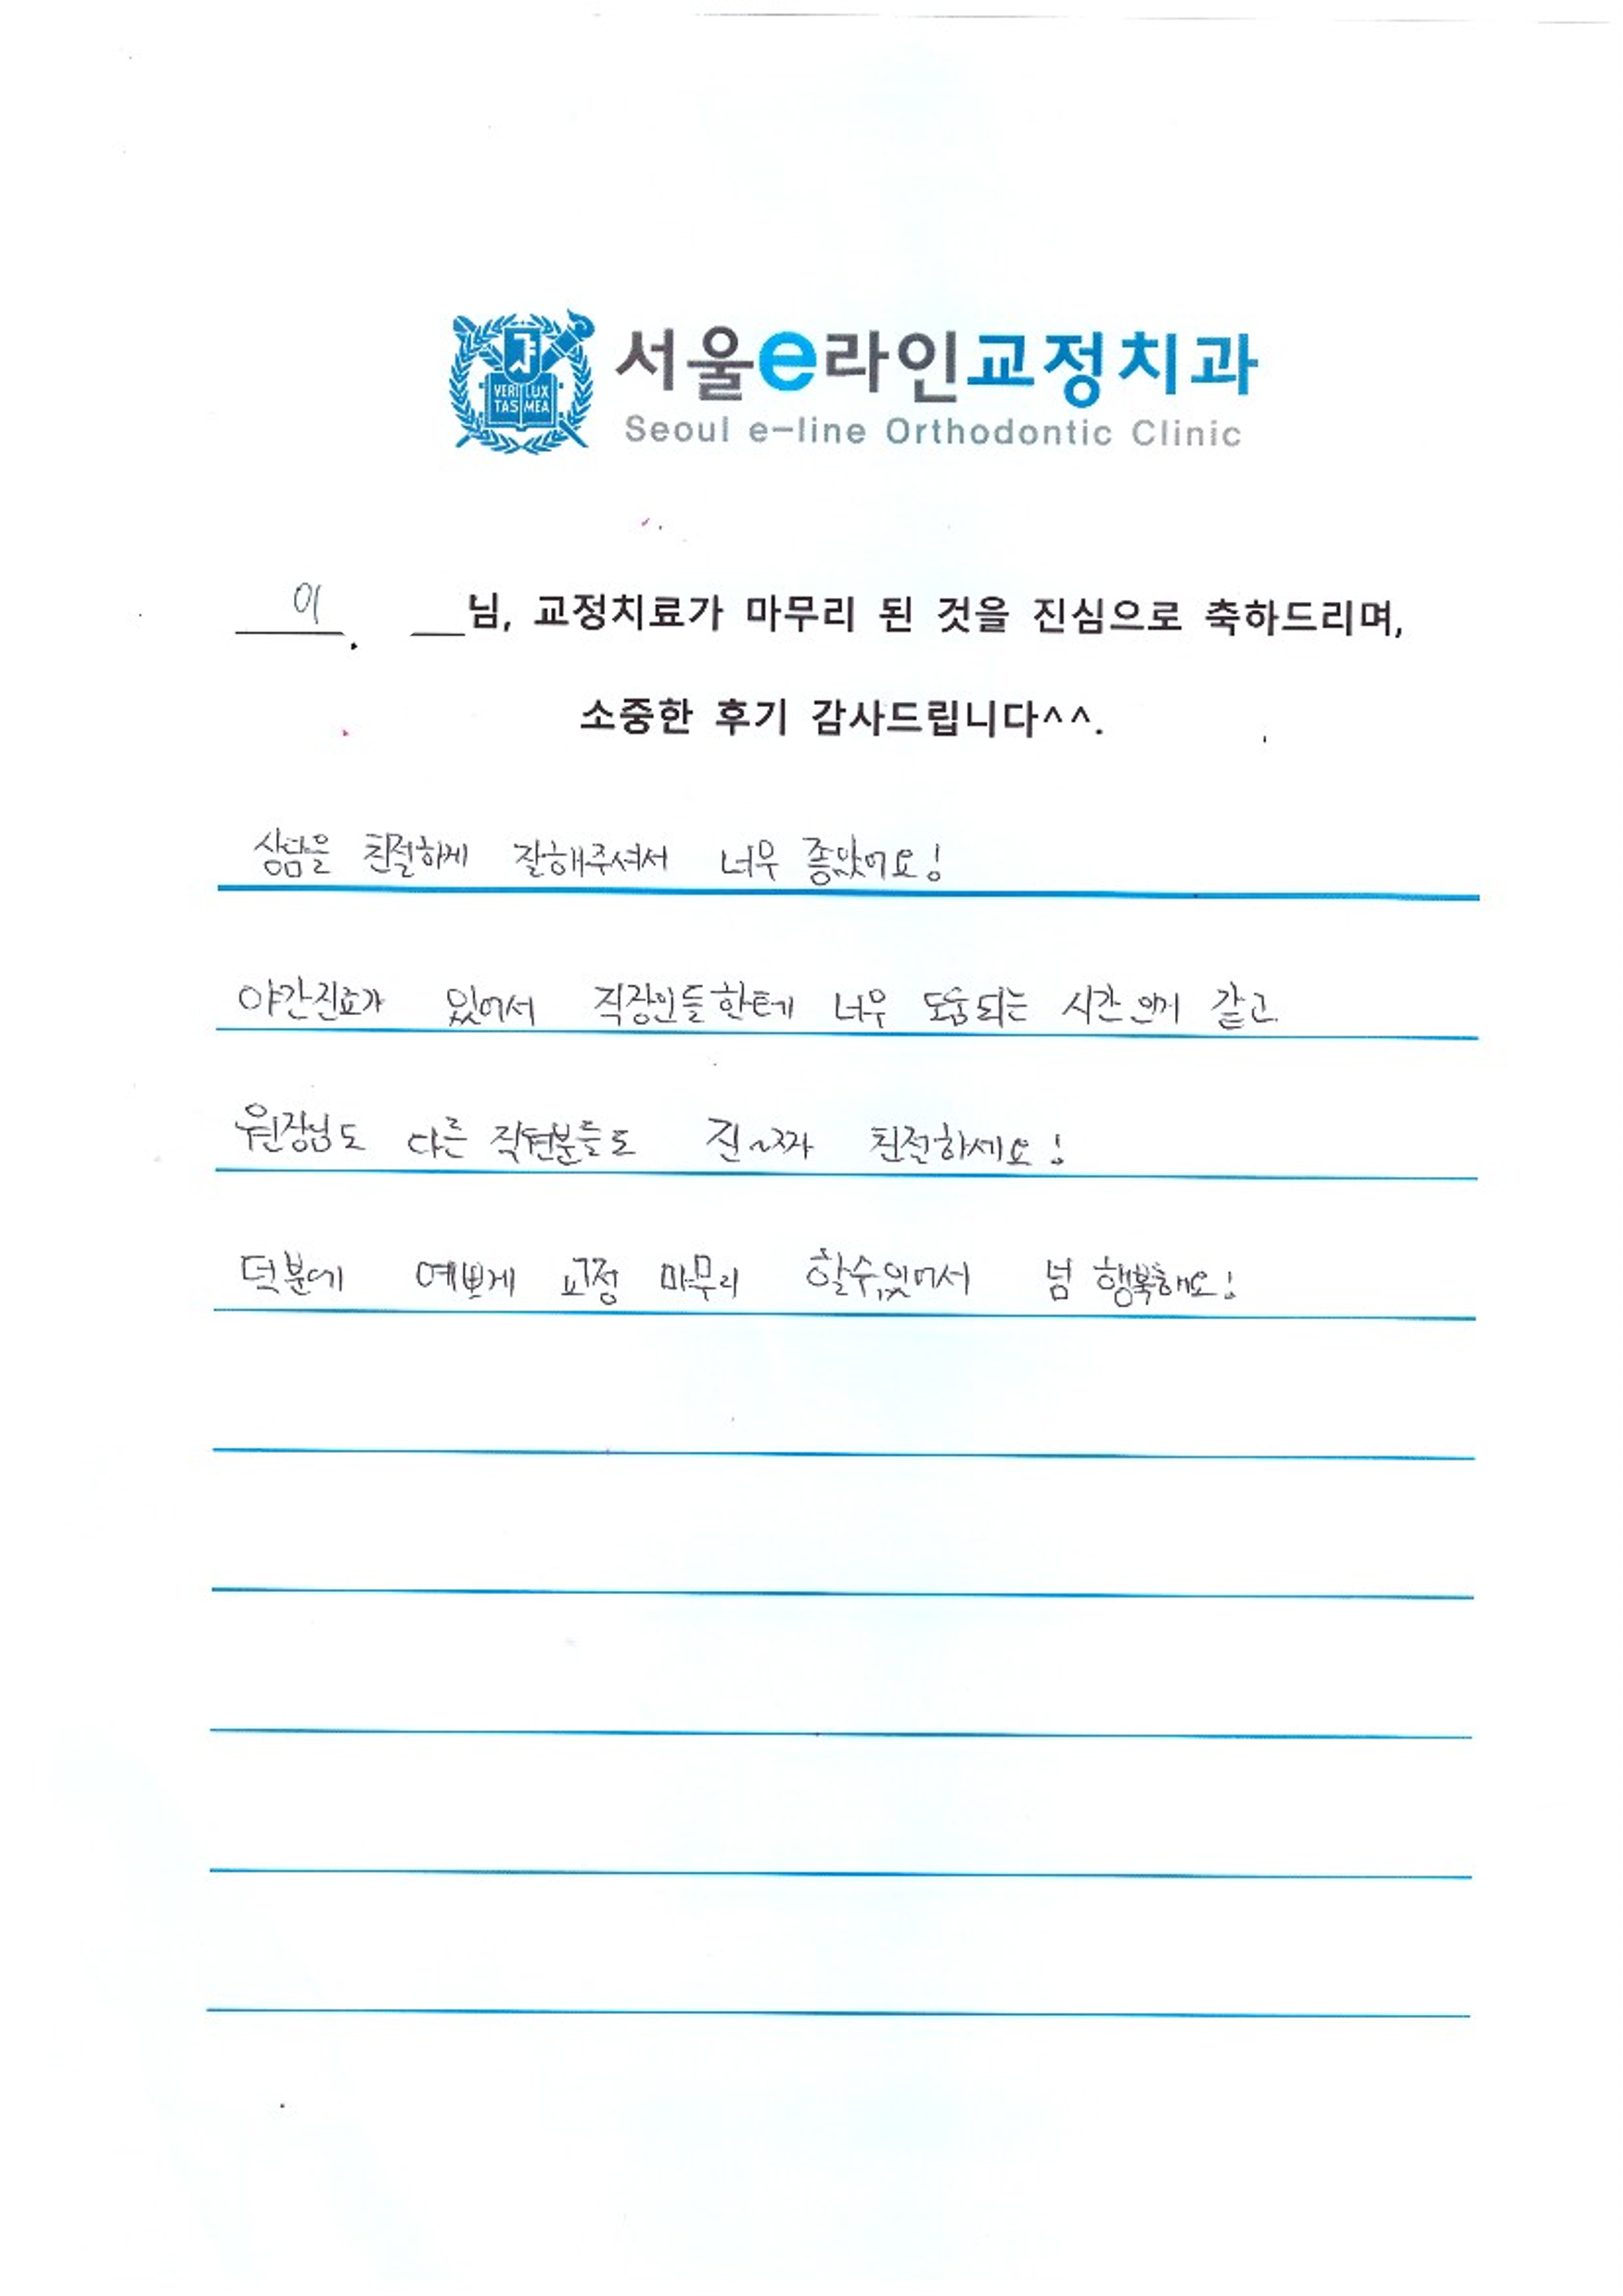 VERI LUX
TAS MEA
서울e라인교정치과
Seoul e-line Orthodontic Clinic
이 님, 교정치료가 마무리 된 것을 진심으로 축하드리며,
소중한 후기 감사드립니다^^.
상담을 친절하게 잘해주셔서 너무 좋았어요!
야간진료가 있어서 직장인들한테 너무 도움되는 시간인거 같고
원장님도 다른 직원분들도 진~짜 친절하세요!
덕분에 예쁘게 교정 마무리 할수있어서 넘 행복해요!